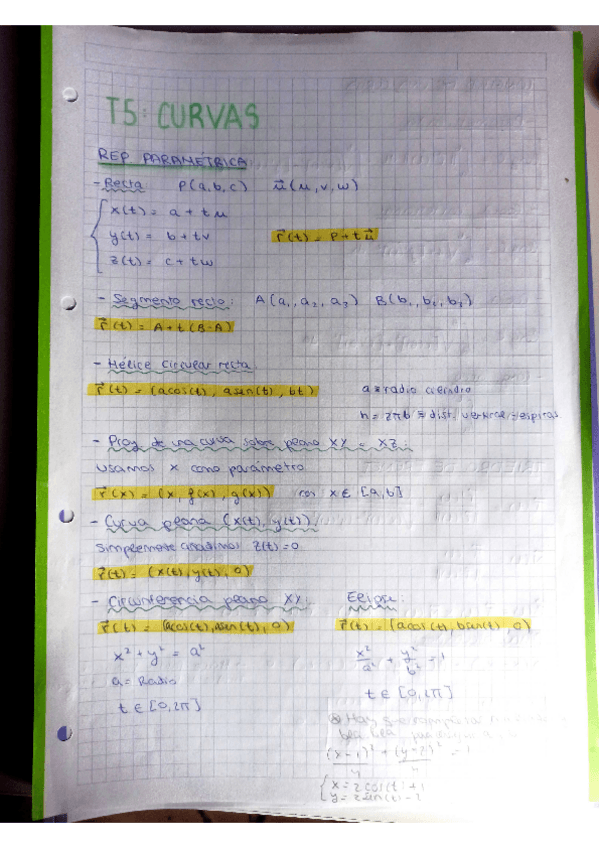 T5: CURVAS
REP PARAMÉTRICA
- Recta P(a,b,c) u⃗(u,v,w)
x(t) = a + t u
y(t) = b + t v
z(t) = c + t w
r⃗(t) = P + t u⃗
- Segmento recto: A(a₁, a₂, a₃) B(b₁, b₂, b₃)
r⃗(t) = A + t(B-A)
- Hélice circular recta:
r⃗(t) = (acos(t), asen(t), bt) a ≡ radio cilindro
h = 2πb ≡ dist. entre espiras
- Proy de una curva sobre plano XY = XZ:
usamos x como parámetro
r⃗(x) = (x, f(x), g(x)) con x ∈ [a,b]
- Curva plana (x(t), y(t))
simplemente z(t) = 0
r⃗(t) = (x(t), y(t), 0)
- Circunferencia plano XY: Elipse:
r⃗(t) = (acos(t), asen(t), 0) r⃗(t) = (acos(t), bsen(t), 0)
x² + y² = a² x²/a² + y²/b² = 1
a = Radio
t ∈ [0, 2π] t ∈ [0, 2π]
Hay que
(x-1)²/4 + (y+2)²/4 = 1
x = 2cos(t) + 1
y = 2sen(t) - 2